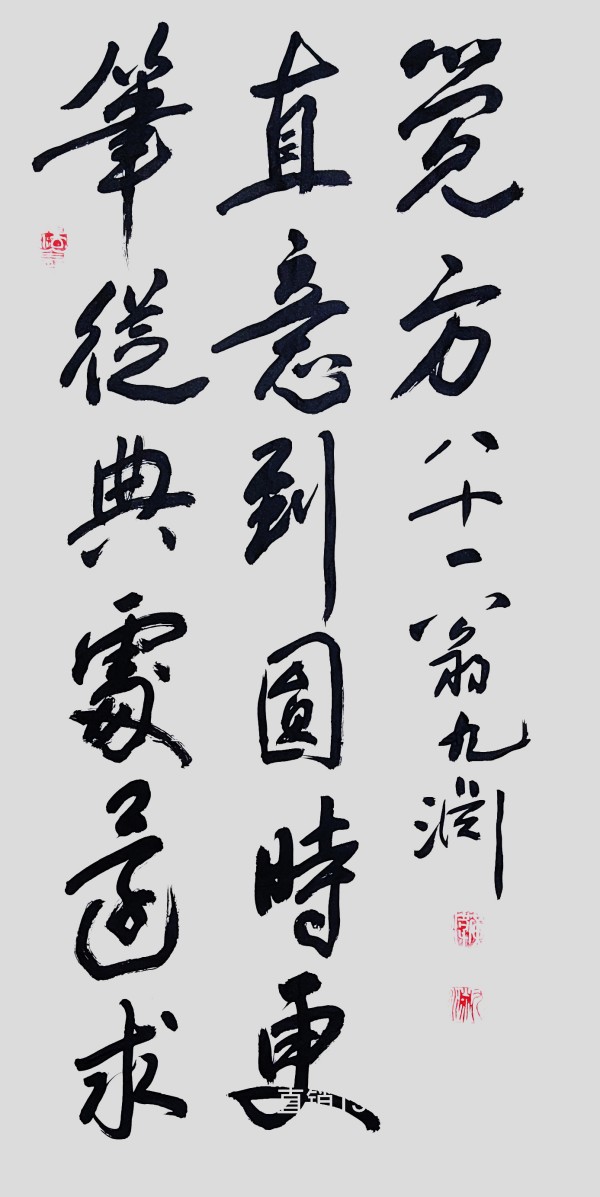 筆從典處還求
直意到圓時更
覺方
八十一翁九淵